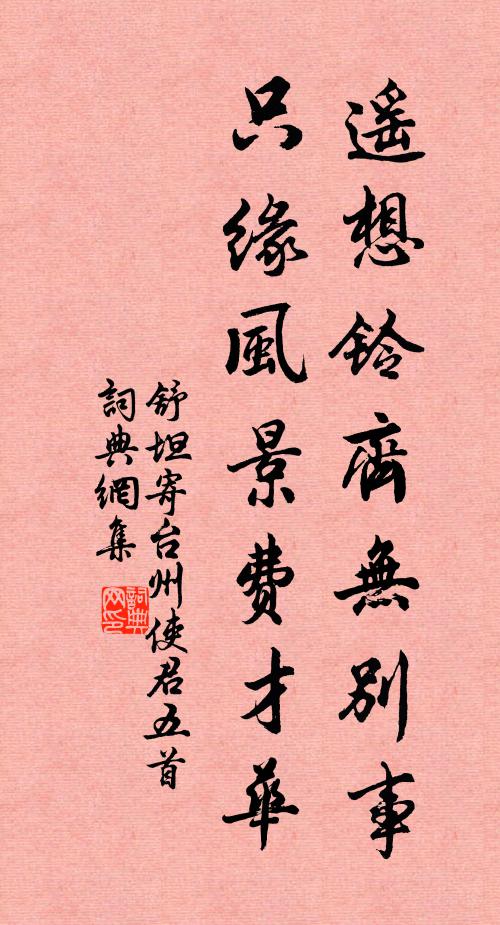 遥想鈴齋無別事
只緣風景費才華
舒坦寄台州使君五首
詞典網集
詞典网印